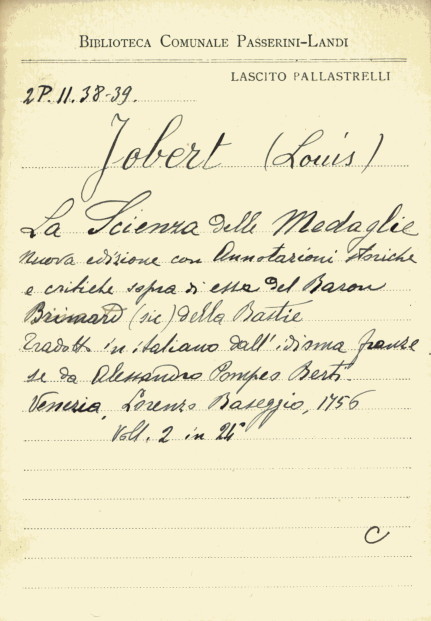 BIBLIOTECA COMUNALE PASSERINI-LANDI
LASCITO PALLASTRELLI
2P.11.38-39.
Jobert (Louis)
La Scienza delle Medaglie
nuova edizione con Annotazioni storiche
e critiche sopra di essa del Baron
Brimard (sic) della Bastie
Tradotta in italiano dall'idioma franze
se da Alessandro Pompeo Berti.
Venezia, Lorenzo Baseggio, 1756
Voll. 2 in 24°
C